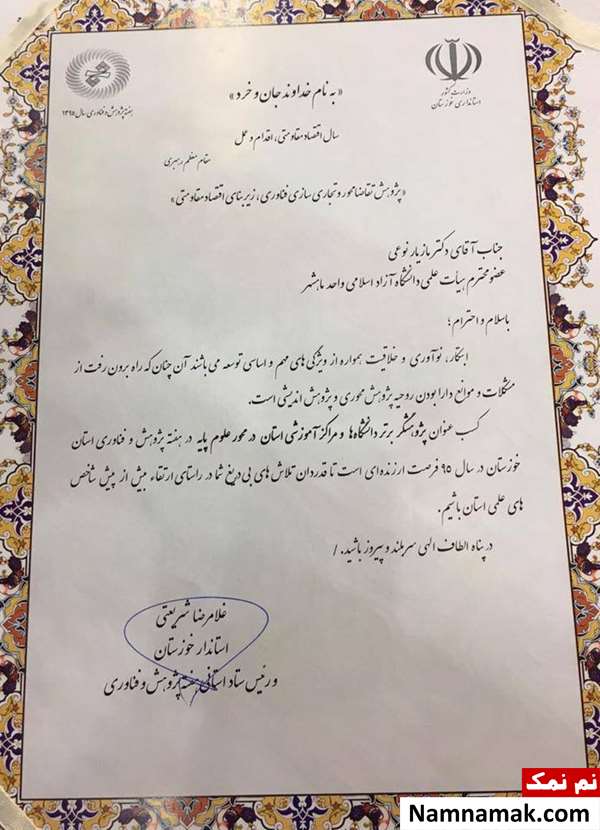 وزارت کشور
استانداری خوزستان
هفته پژوهش و فناوری سال ۱۳۹۵
«به نام خداوند جان و خرد»
سال اقتصاد مقاومتی، اقدام و عمل
مقام معظم رهبری
«پژوهش تقاضا محور و تجاری سازی فناوری، زیربنای اقتصاد مقاومتی»
جناب آقای دکتر مازیار نوعی
عضو محترم هیأت علمی دانشگاه آزاد اسلامی واحد ماهشهر
باسلام و احترام؛
ابتکار، نوآوری و خلاقیت همواره از ویژگی های مهم و اساسی توسعه می باشند آن چنان که راه برون رفت از
مشکلات و موانع دارا بودن روحیه پژوهش محوری و پژوهش اندیشی است.
کسب عنوان پژوهشگر برتر دانشگاه‌ها و مراکز آموزشی استان در محور علوم پایه در هفته پژوهش و فناوری استان
خوزستان در سال ۹۵ فرصت ارزنده ای است تا قدردان تلاش های بی دریغ شما در راستای ارتقاء بیش از پیش شاخص
های علمی استان باشیم.
در پناه الطاف الهی سربلند و پیروز باشید. /
غلامرضا شریعتی
استاندار خوزستان
و رئیس ستاد استانی هفته پژوهش و فناوری
نم نمک
Namnamak.com